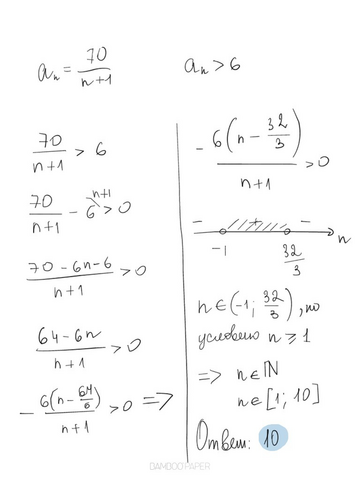 aₙ = 70/(n+1)
aₙ > 6
70/(n+1) > 6
70/(n+1) - 6^(n+1) > 0
(70 - 6n - 6)/(n+1) > 0
(64 - 6n)/(n+1) > 0
- 6(n - 64/6)/(n+1) > 0 =>
- 6(n - 32/3)/(n+1) > 0
- + -
-1 32/3 n
n ∈ (-1; 32/3), по
условию n ≥ 1
=> n ∈ ℕ
n ∈ [1; 10]
Ответ: 10
BAMBOO PAPER